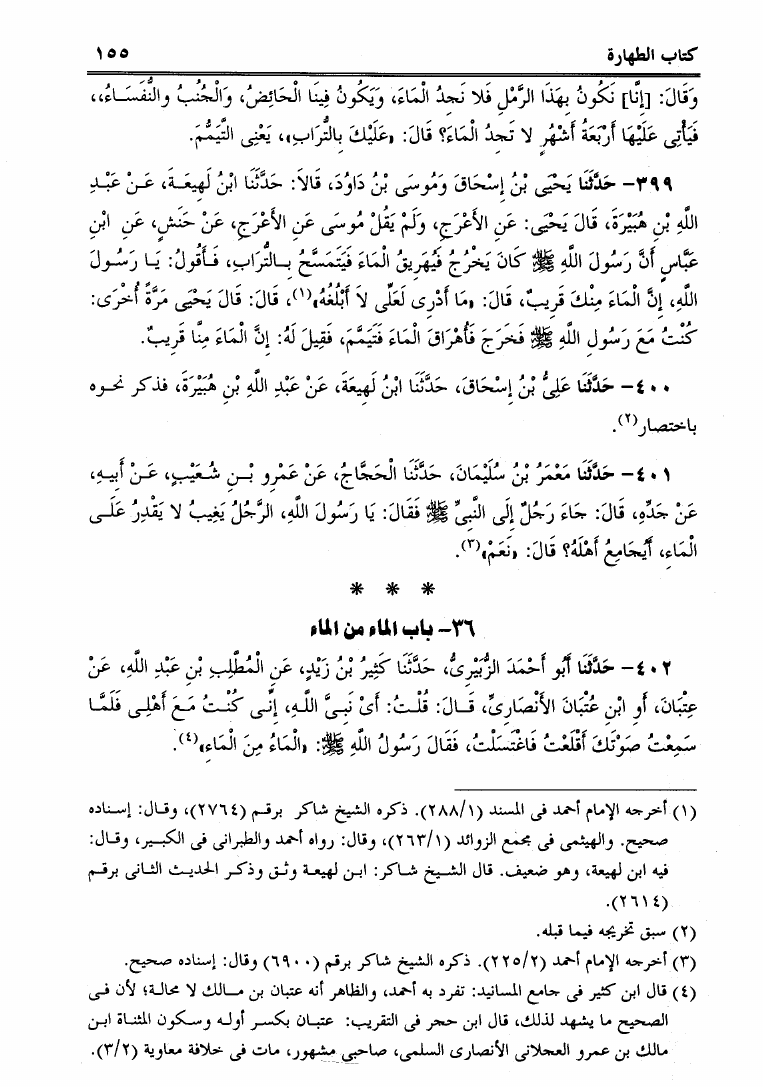 كتاب الطهارة ١٥٥
وَقَالَ: [إِنَّا] نَكُونُ بِهَذَا الرَّمْلِ فَلا نَجِدُ الْمَاءَ، وَيَكُونُ فِينَا الْحَائِضُ، وَالْجُنُبُ والنُّفَسَاءُ،،
فَيَأْتِى عَلَيْهَا أَرْبَعَةُ أَشْهُرٍ لا تَجِدُ الْمَاءَ؟ قَالَ: «عَلَيْكَ بِالتُّرَابِ»، يَعْنِى التَّيَمُّمَ.
٣٩٩- حَدَّثَنَا يَحْيَى بْنُ إِسْحَاقَ وَمُوسَى بْنُ دَاوُدَ، قَالاَ: حَدَّثَنَا ابْنُ لَهِيعَةَ، عَنْ عَبْدِ
اللَّهِ بْنِ هُبَيْرَةَ، قَالَ يَحْيَى: عَنِ الأَعْرَجِ، وَلَمْ يَقُلْ مُوسَى عَنِ الأَعْرَجِ، عَنْ حَنَشٍ، عَنِ ابْنِ
عَبَّاسٍ أَنَّ رَسُولَ اللَّهِ ﷺ كَانَ يَخْرُجُ فَيُهَرِيقُ الْمَاءَ فَيَتَمَسَّحُ بِالتُّرَابِ، فَأَقُولُ: يَا رَسُولَ
اللَّهِ، إِنَّ الْمَاءَ مِنْكَ قَرِيبٌ، قَالَ: «مَا أَدْرِى لَعَلِّى لاَ أَبْلُغُهُ»(١)، قَالَ: قَالَ يَحْيَى مَرَّةً أُخْرَى:
كُنْتُ مَعَ رَسُولِ اللَّهِ ﷺ فَخَرَجَ فَأَهْرَاقَ الْمَاءَ فَتَيَمَّمَ، فَقِيلَ لَهُ: إِنَّ الْمَاءَ مِنَّا قَرِيبٌ.
٤٠٠- حَدَّثَنَا عَلِىُّ بْنُ إِسْحَاقَ، حَدَّثَنَا ابْنُ لَهِيعَةَ، عَنْ عَبْدِ اللَّهِ بْنِ هُبَيْرَةَ، فذكر نحوه
باختصار(٢).
٤٠١- حَدَّثَنَا مَعْمَرُ بْنُ سُلَيْمَانَ، حَدَّثَنَا الْحَجَّاجُ، عَنْ عَمْرِو بْنِ شُعَيْبٍ، عَنْ أَبِيهِ،
عَنْ جَدِّهِ، قَالَ: جَاءَ رَجُلٌ إِلَى النَّبِىِّ ﷺ فَقَالَ: يَا رَسُولَ اللَّهِ، الرَّجُلُ يَغِيبُ لا يَقْدِرُ عَلَى
الْمَاءِ، أَيُجَامِعُ أَهْلَهُ؟ قَالَ: «نَعَمْ»(٣).
* * *
٣٦- باب الماء من الماء
٤٠٢- حَدَّثَنَا أَبُو أَحْمَدَ الزُّبَيْرِىُّ، حَدَّثَنَا كَثِيرُ بْنُ زَيْدٍ، عَنِ الْمُطَّلِبِ بْنِ عَبْدِ اللَّهِ، عَنْ
عِتْبَانَ، أَوِ ابْنِ عُتْبَانَ الأَنْصَارِىِّ، قَالَ: قُلْتُ: أَىْ نَبِىَّ اللَّهِ، إِنِّى كُنْتُ مَعَ أَهْلِى فَلَمَّا
سَمِعْتُ صَوْتَكَ أَقْلَعْتُ فَاغْتَسَلْتُ، فَقَالَ رَسُولُ اللَّهِ ﷺ: «الْمَاءُ مِنَ الْمَاءِ»(٤).
(١) أخرجه الإمام أحمد فى المسند (٢٨٨/١). ذكره الشيخ شاكر برقم (٢٧٦٤)، وقال: إسناده
صحيح. والهيثمى فى مجمع الزوائد (٢٦٣/١)، وقال: رواه أحمد والطبرانى فى الكبير، وقال:
فيه ابن لهيعة، وهو ضعيف. قال الشيخ شاكر: ابن لهيعة وثق وذكر الحديث الثانى برقم
(٢٦١٤).
(٢) سبق تخريجه فيما قبله.
(٣) أخرجه الإمام أحمد (٢٢٥/٢). ذكره الشيخ شاكر برقم (٦٩٠٠) وقال: إسناده صحيح.
(٤) قال ابن كثير فى جامع المسانيد: تفرد به أحمد، والظاهر أنه عتبان بن مالك لا محالة؛ لأن فى
الصحيح ما يشهد لذلك، قال ابن حجر فى التقريب: عتبان بكسر أوله وسكون المثناة ابن
مالك بن عمرو العجلانى الأنصارى السلمى، صاحبى مشهور، مات فى خلافة معاوية (٣/٢).